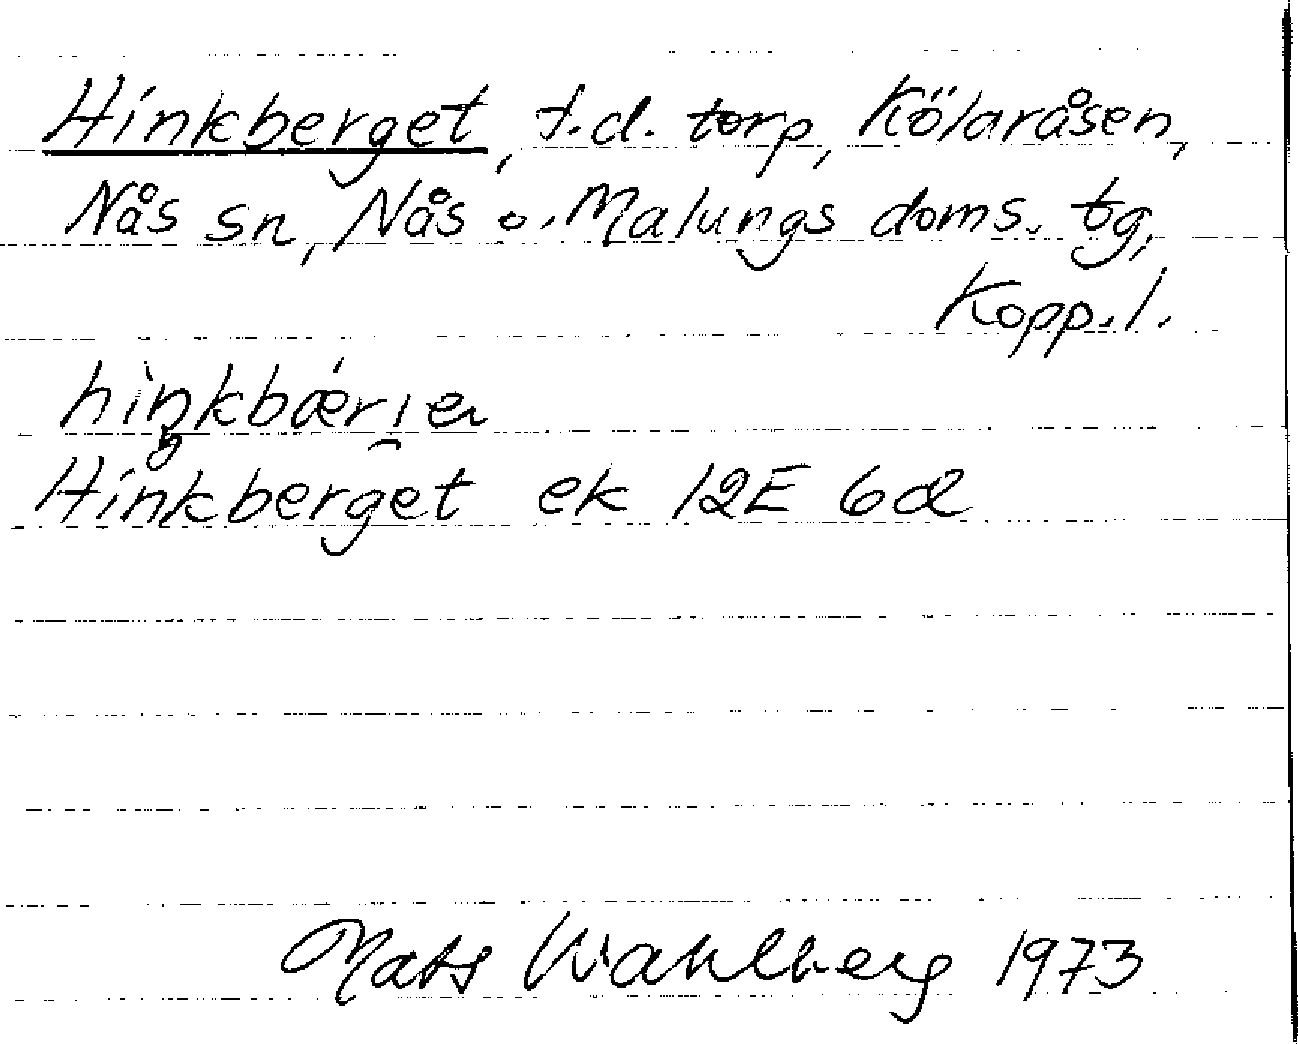 Hinkberget, f.d. torp, Kölaråsen,
Nås sn, Nås o. Malungs doms. tg,
Kopp.l.
hìŋkbæ̀ri̯en
Hinkberget ek 12E 6d
Mats Wahlberg 1973